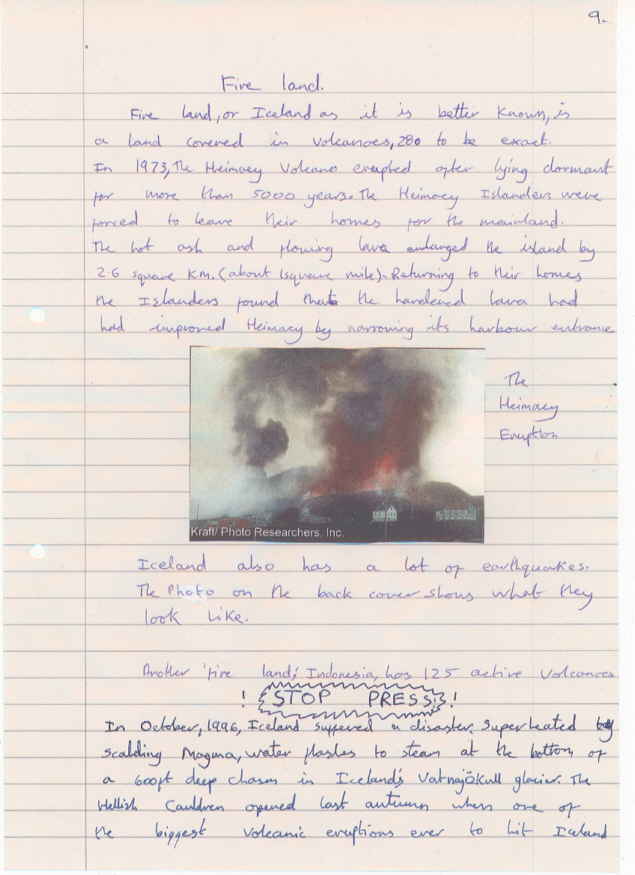 9.
Fire land.
Fire land, or Iceland as it is better Known, is
a land covered in Volcanoes, 280 to be exact.
In 1973, The Heimaey Volcano erupted after lying dormant
for more than 5000 years. The Heimaey Islanders were
forced to leave their homes for the mainland.
The hot ash and flowing lava enlarged the island by
2.6 square Km. (about 1square mile). Returning to their homes
the Islanders found that the hardened lava had
had improved Heimaey by narrowing its harbour entrance
The
Heimaey
Eruption
Kraft/ Photo Researchers, Inc.
Iceland also has a lot of earthquakes.
The Photo on the back cover shows what they
look like.
Another 'fire land', Indonesia, has 125 active Volcanoes
! STOP PRESS !
In October, 1996, Iceland suffered a disaster. Superheated by
Scalding Magma, water flashes to steam at the bottom of
a 600ft deep chasm in Iceland's Vatnajökull glacier. The
Hellish Cauldren opened last autumn when one of
the biggest Volcanic eruptions ever to hit Iceland